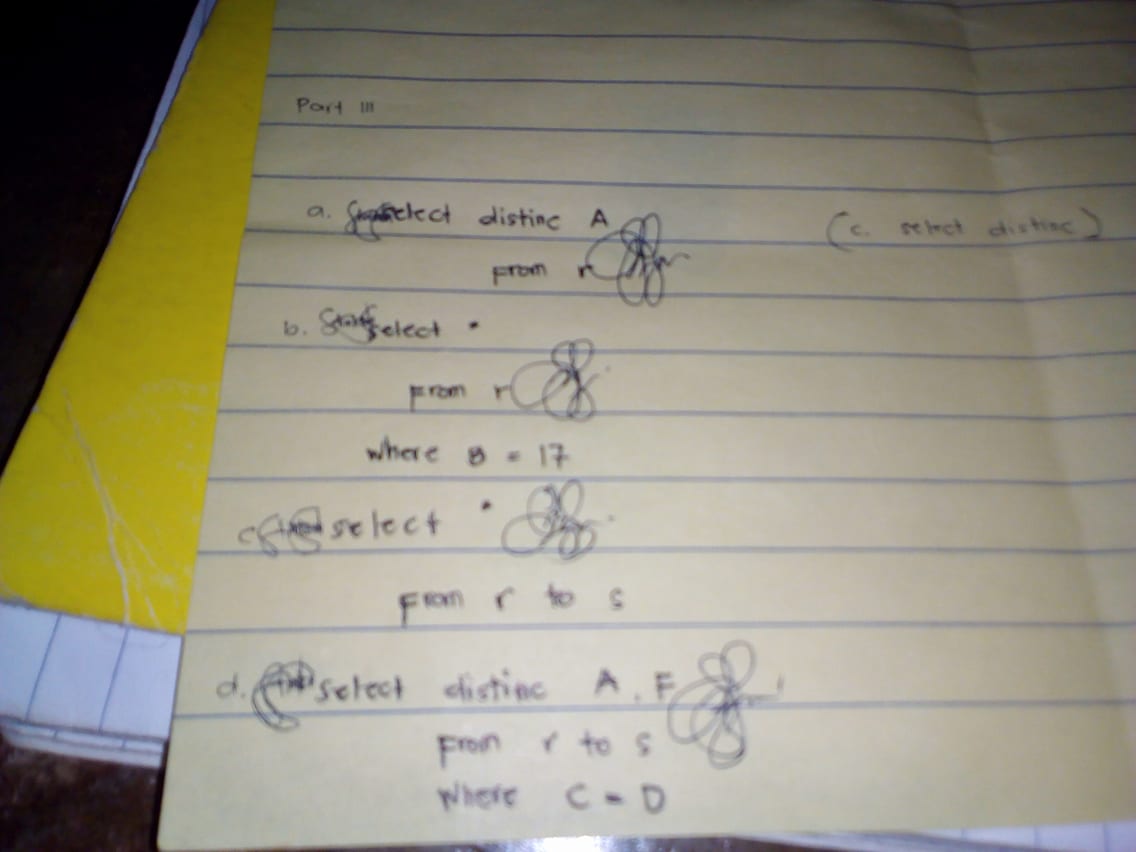 Part III
a. select distinc A
(c. select distinc)
from r
b. select *
from r
where B = 17
c. select *
from r to s
d. select distinc A, F
from r to s
where C = D